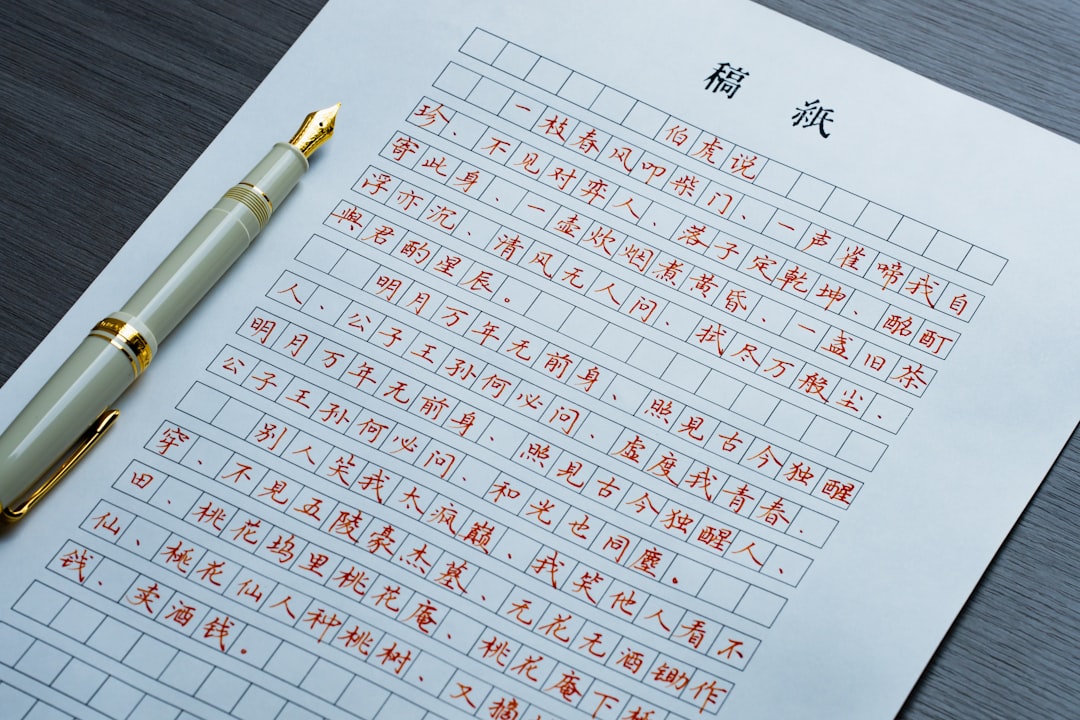 稿 紙
伯虎说
一枝春风叩柴门、一声雀啼我自
珍、不见对弈人、落子定乾坤、酩酊
寄此身、一壶炊烟煮黄昏、一盏旧茶
浮亦沉、清风无人问、拭尽万般尘.
與君酌星辰。
明月万年无前身、照見古今独醒
人、公子王孙何必问、虚度我青春.
明月万年无前身、照見古今独醒人、
公子王孙何必问、和光也同塵。
别人笑我太疯巅、我笑他人看不
穿、不見五陵豪杰墓、无花无酒锄作
田、桃花坞里桃花庵、桃花庵下
仙、桃花仙人种桃树、又摘
钱、卖酒钱。